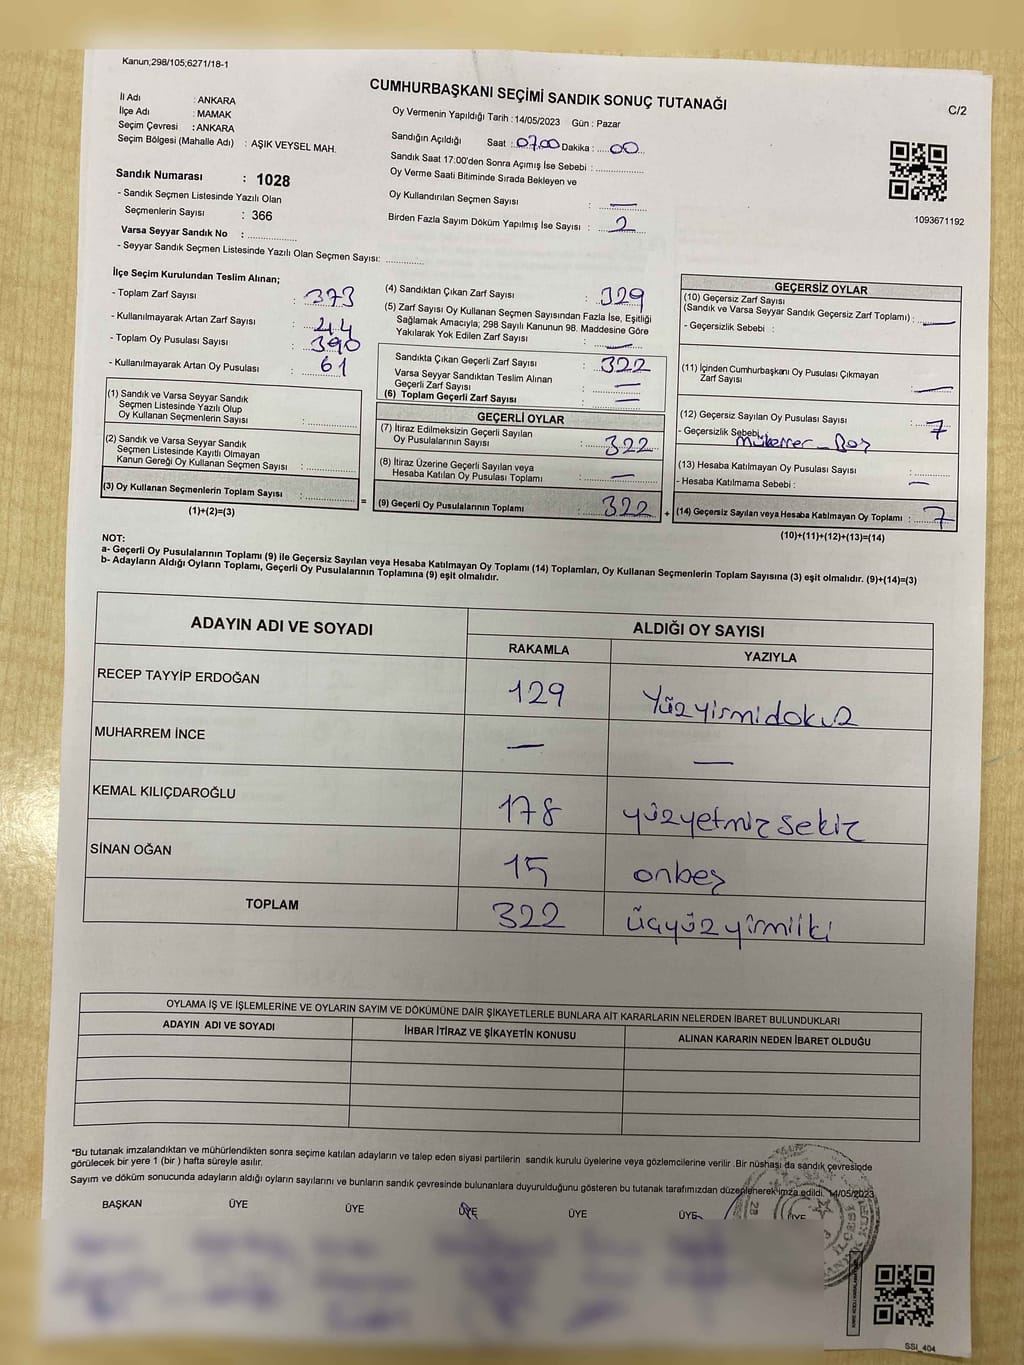 Kanun,298/105,6271/18-1
CUMHURBAŞKANI SEÇİMİ SANDIK SONUÇ TUTANAĞI
C/2
İl Adı : ANKARA
İlçe Adı : MAMAK
Seçim Çevresi : ANKARA
Seçim Bölgesi (Mahalle Adı) : AŞIK VEYSEL MAH.
Oy Vermenin Yapıldığı Tarih : 14/05/2023 Gün : Pazar
Sandığın Açıldığı Saat : 07.00 Dakika : 00
Sandık Saat 17:00'den Sonra Açımış İse Sebebi :
Oy Verme Saati Bitiminde Sırada Bekleyen ve
Oy Kullandırılan Seçmen Sayısı : —
Birden Fazla Sayım Döküm Yapılmış İse Sayısı : 2
1093671192
Sandık Numarası : 1028
- Sandık Seçmen Listesinde Yazılı Olan
Seçmenlerin Sayısı : 366
Varsa Seyyar Sandık No :
- Seyyar Sandık Seçmen Listesinde Yazılı Olan Seçmen Sayısı:
İlçe Seçim Kurulundan Teslim Alınan;
- Toplam Zarf Sayısı : 373
- Kullanılmayarak Artan Zarf Sayısı : 44
- Toplam Oy Pusulası Sayısı : 390
- Kullanılmayarak Artan Oy Pusulası : 61
(1) Sandık ve Varsa Seyyar Sandık
Seçmen Listesinde Yazılı Olup
Oy Kullanan Seçmenlerin Sayısı :
(2) Sandık ve Varsa Seyyar Sandık
Seçmen Listesinde Kayıtlı Olmayan
Kanun Gereği Oy Kullanan Seçmen Sayısı :
(3) Oy Kullanan Seçmenlerin Toplam Sayısı :
(1)+(2)=(3)
=
(4) Sandıktan Çıkan Zarf Sayısı : 329
(5) Zarf Sayısı Oy Kullanan Seçmen Sayısından Fazla İse, Eşitliği
Sağlamak Amacıyla; 298 Sayılı Kanunun 98. Maddesine Göre
Yakılarak Yok Edilen Zarf Sayısı : —
Sandıkta Çıkan Geçerli Zarf Sayısı : 322
Varsa Seyyar Sandıktan Teslim Alınan
Geçerli Zarf Sayısı : —
(6) Toplam Geçerli Zarf Sayısı : —
GEÇERLİ OYLAR
(7) İtiraz Edilmeksizin Geçerli Sayılan
Oy Pusulalarının Sayısı : 322
(8) İtiraz Üzerine Geçerli Sayılan veya
Hesaba Katılan Oy Pusulası Toplamı : —
(9) Geçerli Oy Pusulalarının Toplamı : 322
+
GEÇERSİZ OYLAR
(10) Geçersiz Zarf Sayısı
(Sandık ve Varsa Seyyar Sandık Geçersiz Zarf Toplamı) : —
- Geçersizlik Sebebi :
(11) İçinden Cumhurbaşkanı Oy Pusulası Çıkmayan
Zarf Sayısı : —
(12) Geçersiz Sayılan Oy Pusulası Sayısı : 7
- Geçersizlik Sebebi: mükerrer - Boş
(13) Hesaba Katılmayan Oy Pusulası Sayısı :
- Hesaba Katılmama Sebebi : —
(14) Geçersiz Sayılan veya Hesaba Katılmayan Oy Toplamı : 7
(10)+(11)+(12)+(13)=(14)
NOT:
a- Geçerli Oy Pusulalarının Toplamı (9) ile Geçersiz Sayılan veya Hesaba Katılmayan Oy Toplamı (14) Toplamları, Oy Kullanan Seçmenlerin Toplam Sayısına (3) eşit olmalıdır. (9)+(14)=(3)
b- Adayların Aldığı Oyların Toplamı, Geçerli Oy Pusulalarının Toplamına (9) eşit olmalıdır.
ADAYIN ADI VE SOYADI
ALDIĞI OY SAYISI
RAKAMLA
YAZIYLA
RECEP TAYYİP ERDOĞAN 129 Yüzyirmidokuz
MUHARREM İNCE — —
KEMAL KILIÇDAROĞLU 178 yüzyetmiz sekiz
SİNAN OĞAN 15 onbeş
TOPLAM 322 üçyüz yirmiiki
OYLAMA İŞ VE İŞLEMLERİNE VE OYLARIN SAYIM VE DÖKÜMÜNE DAİR ŞİKAYETLERLE BUNLARA AİT KARARLARIN NELERDEN İBARET BULUNDUKLARI
ADAYIN ADI VE SOYADI
İHBAR İTİRAZ VE ŞİKAYETİN KONUSU
ALINAN KARARIN NEDEN İBARET OLDUĞU
*Bu tutanak imzalandıktan ve mühürlendikten sonra seçime katılan adayların ve talep eden siyasi partilerin sandık kurulu üyelerine veya gözlemcilerine verilir .Bir nüshası da sandık çevresinde
görülecek bir yere 1 (bir ) hafta süreyle asılır.
Sayım ve döküm sonucunda adayların aldığı oyların sayılarını ve bunların sandık çevresinde bulunanlara duyurulduğunu gösteren bu tutanak tarafımızdan düzenlenerek imza edildi. 14/05/2023
BAŞKAN ÜYE ÜYE ÜYE ÜYE ÜYE ÜYE
SSİ_404